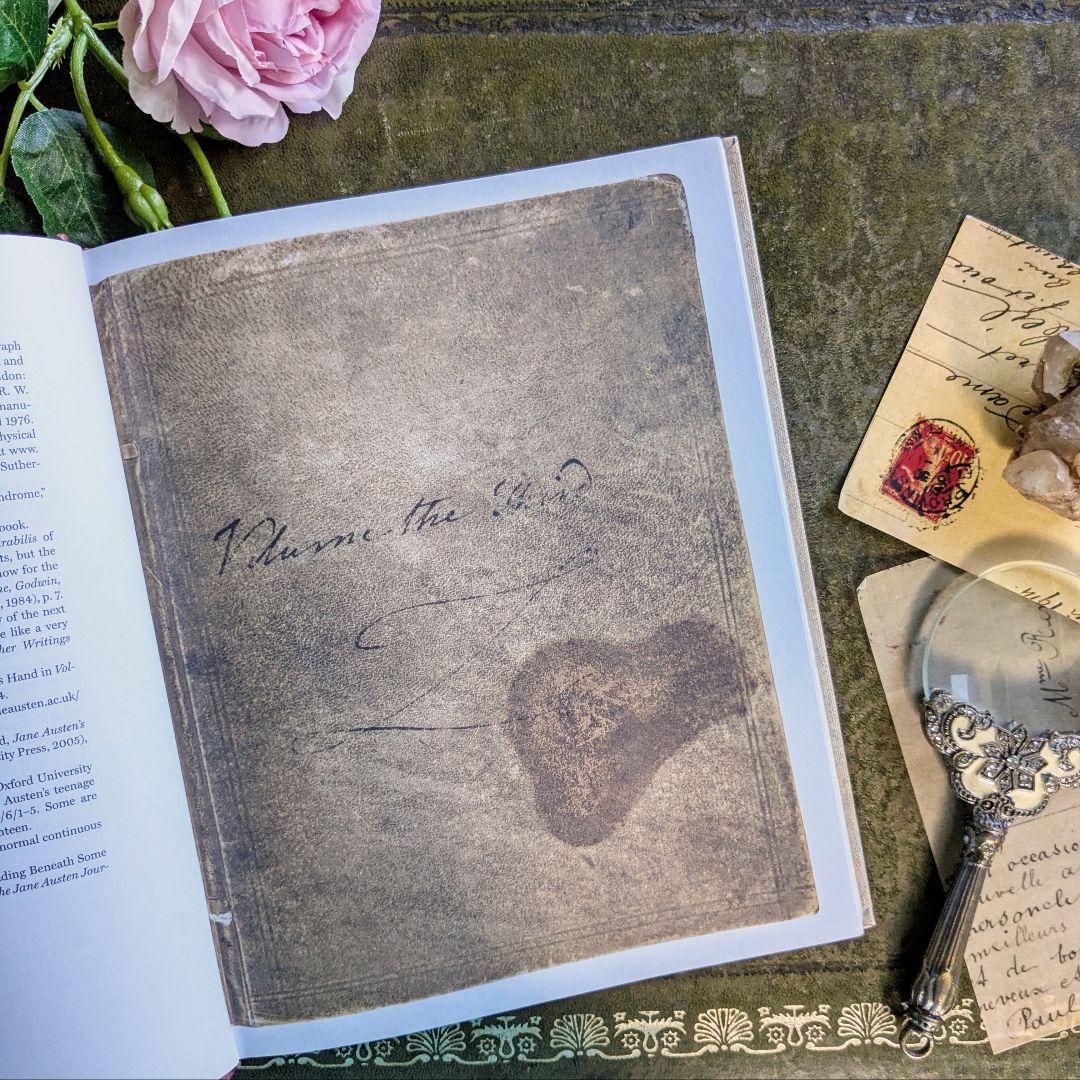 aph
and
don:
R. W.
manu-
1976.
hysical
t www.
Suther-
ndrome,"
book.
rabilis of
ts, but the
now for the
ne, Godwin,
, 1984), p. 7.
y of the next
e like a very
her Writings
s Hand in Vol-
4.
eausten.ac.uk/
d, Jane Austen's
ity Press, 2005),
Oxford University
Austen's teenage
/6/1–5. Some are
nteen.
normal continuous
ding Beneath Some
he Jane Austen Jour-
Volume the Third
Mme
occasio
uvelle a
personele
meilleurs
de bo
neveux e
Paul